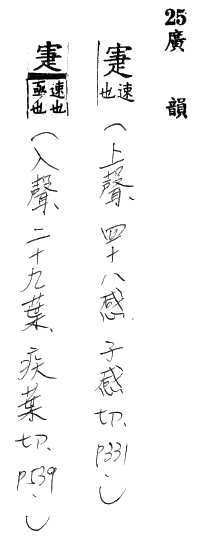 25廣韻
寁速也(上聲、四十八感、子感切、p331.)
寁速也亟也(入聲、二十九葉、疾葉切、p539.)